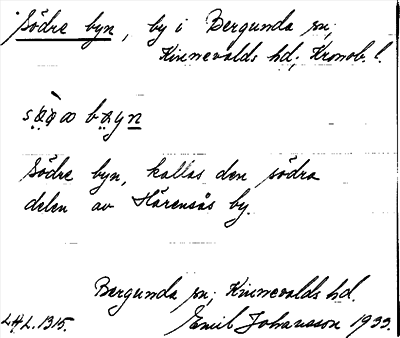 Södre byn, by i Bergunda sn;
Kinnevalds hd; Kronob. l.
Södre byn, kallas den södra
delen av Härensås by.
Bergunda sn; Kinnevalds hd.
L.H.L. 1315. Emil Johansson 1933.